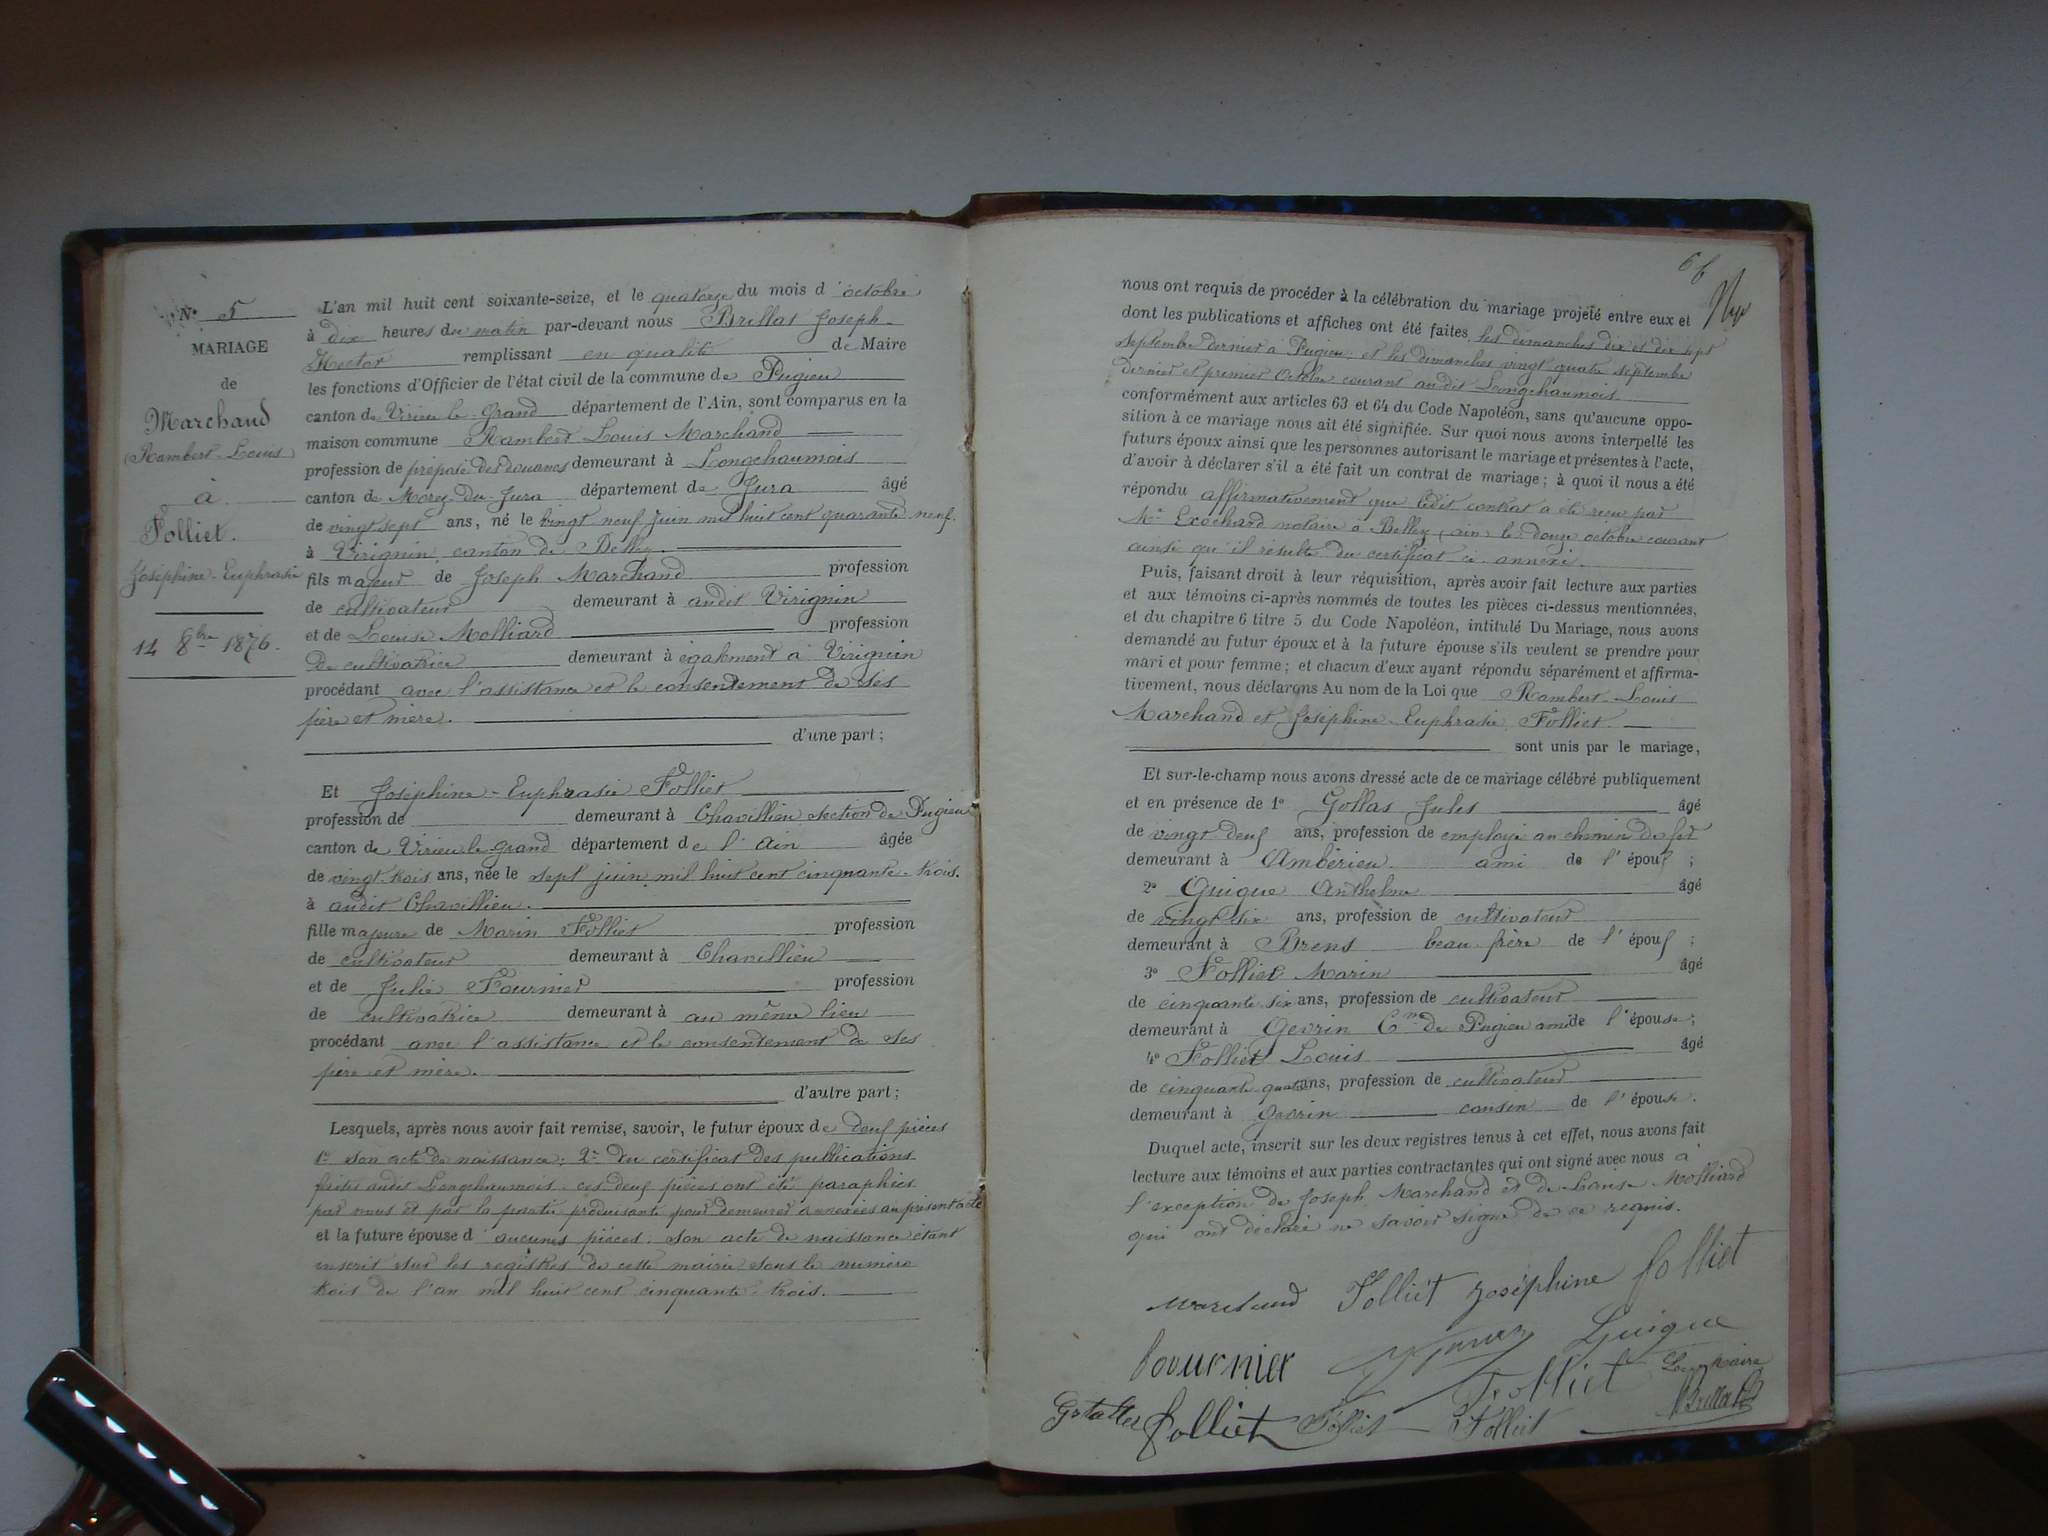 N° 5
MARIAGE
de
Marchand
(Rambert-Louis)
à
Folliet.
Joséphine-Euphrasie
14 8bre 1876.
L'an mil huit cent soixante-seize, et le quatorze du mois d'octobre
à dix heures du matin par-devant nous Brillat Joseph-
Hector remplissant en qualité de Maire
les fonctions d'Officier de l'état civil de la commune de Pugieu
canton de Virieu-le-Grand département de l'Ain, sont comparus en la
maison commune Rambert Louis Marchand
profession de préposé des douanes demeurant à Longchaumois
canton de Morez-du-Jura département de Jura âgé
de vingt sept ans, né le vingt neuf juin mil huit cent quarante neuf.
à Virignin canton de Belley.
fils majeur de Joseph Marchand profession
de cultivateur demeurant à audit Virignin
et de Louise Molliard profession
de cultivatrice demeurant à également à Virignin
procédant avec l'assistance et le consentement de ses
père et mère.
d'une part;
Et Joséphine-Euphrasie Folliet
profession de demeurant à Chavillieu section de Pugieu
canton de Virieu-le-grand département de l'Ain âgée
de vingt-trois ans, née le sept juin mil huit cent cinquante-trois.
à audit Chavillieu.
fille majeure de Marin Folliet profession
de cultivateur demeurant à Chavillieu
et de Julie Fournier profession
de cultivatrice demeurant à au même lieu
procédant avec l'assistance et le consentement de ses
père et mère.
d'autre part;
Lesquels, après nous avoir fait remise, savoir, le futur époux de deux pièces
1° son acte de naissance; 2° du certificat des publications
faites audit Longchaumois. ces deux pièces ont été paraphées
par nous et par la partie produisante pour demeurer annexées au présent acte
et la future épouse d'aucunes pièces. son acte de naissance étant
inscrit sur les registres de cette mairie sous le numéro
trois de l'an mil huit cent cinquante-trois.
66
nous ont requis de procéder à la célébration du mariage projeté entre eux et
dont les publications et affiches ont été faites les dimanches dix et dix sept
septembre dernier à Pugieu; et les dimanches vingt quatre septembre
dernier et premier Octobre courant audit Longchaumois.
conformément aux articles 63 et 64 du Code Napoléon, sans qu'aucune oppo-
sition à ce mariage nous ait été signifiée. Sur quoi nous avons interpellé les
futurs époux ainsi que les personnes autorisant le mariage et présentes à l'acte,
d'avoir à déclarer s'il a été fait un contrat de mariage; à quoi il nous a été
répondu affirmativement que ledit contrat a été reçu par
Me notaire à Belley (ain) le douze octobre courant
ainsi qu'il résulte du certificat ci annexé.
Puis, faisant droit à leur réquisition, après avoir fait lecture aux parties
et aux témoins ci-après nommés de toutes les pièces ci-dessus mentionnées,
et du chapitre 6 titre 5 du Code Napoléon, intitulé Du Mariage, nous avons
demandé au futur époux et à la future épouse s'ils veulent se prendre pour
mari et pour femme; et chacun d'eux ayant répondu séparément et affirma-
tivement, nous déclarons Au nom de la Loi que Rambert-Louis
Marchand et Joséphine-Euphrasie Folliet.
sont unis par le mariage,
Et sur-le-champ nous avons dressé acte de ce mariage célébré publiquement
et en présence de 1° Gollas Jules âgé
de vingt deux ans, profession de employé au chemin de fer
demeurant à Ambérieu ami de l'époux;
2° Guigue Anthelme âgé
de vingt six ans, profession de cultivateur
demeurant à Brens beau-frère de l'époux;
3° Folliet Marin âgé
de cinquante six ans, profession de cultivateur
demeurant à Gevrin Cne de Pugieu ami de l'épouse;
4° Folliet Louis âgé
de cinquante quatre ans, profession de cultivateur
demeurant à Gevrin cousin de l'épouse.
Duquel acte, inscrit sur les deux registres tenus à cet effet, nous avons fait
lecture aux témoins et aux parties contractantes qui ont signé avec nous à
l'exception de Joseph Marchand et de Louise Molliard
qui ont déclaré ne savoir signer de ce requis.
Marchand Folliet Joséphine Folliet
fournier Guigue
Folliet Le Maire
folliet Folliet Folliet Brillat